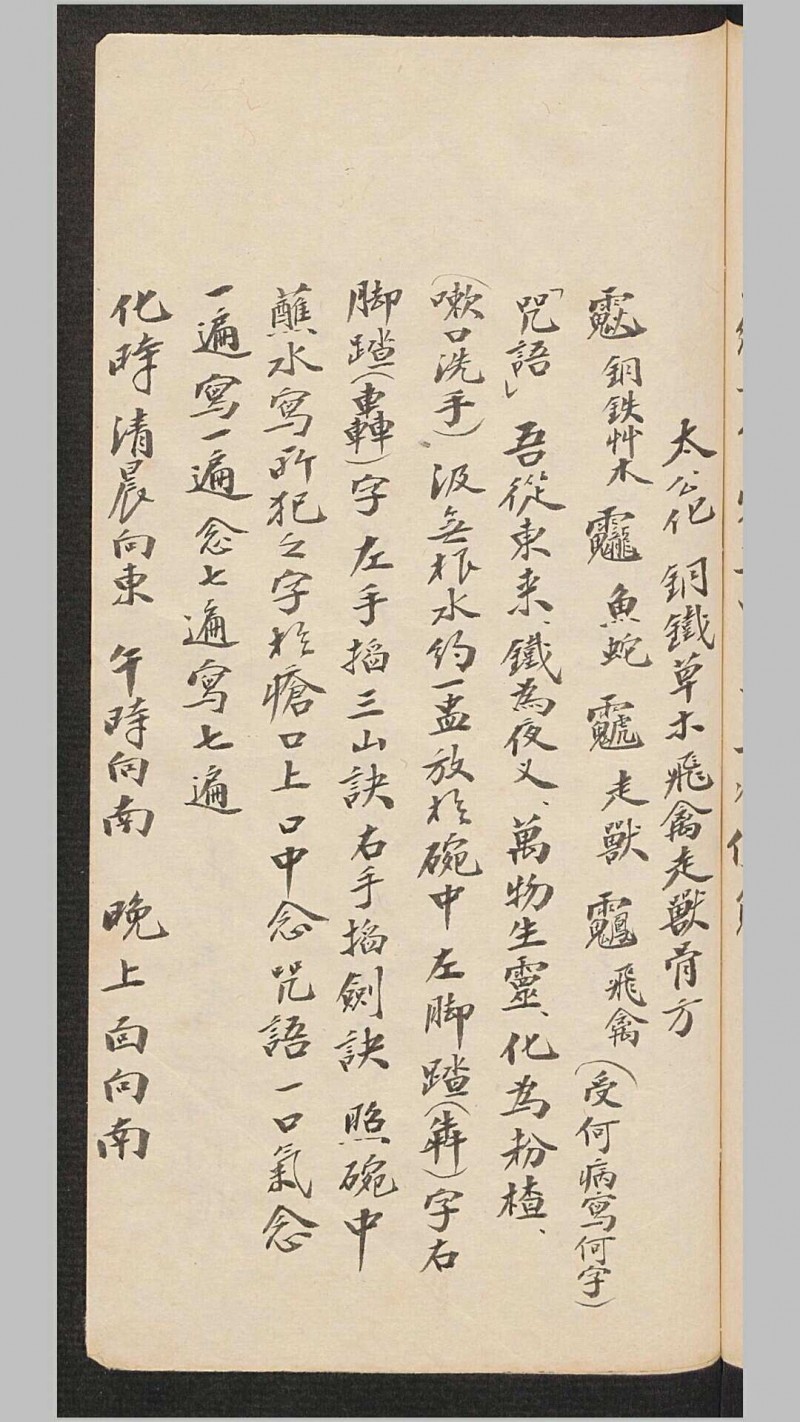 太公化 銅鐵草木飛禽走獸骨方
銅鉄艸木 魚蛇 走獸 飛禽(受何病寫何字)
「咒語」 吾從東来、鐵為夜叉、萬物生靈、化為粉楂、
(嗽口洗手)汲無根水約一盂放於碗中左脚踏(犇)字右
脚踏(轟)字左手搯三山訣右手搯劍訣照碗中
蘸水寫所犯之字於瘡口上口中念咒語一口氣念
一遍寫一遍念七遍寫七遍
化時清晨向東 午時向南 晚上面向南